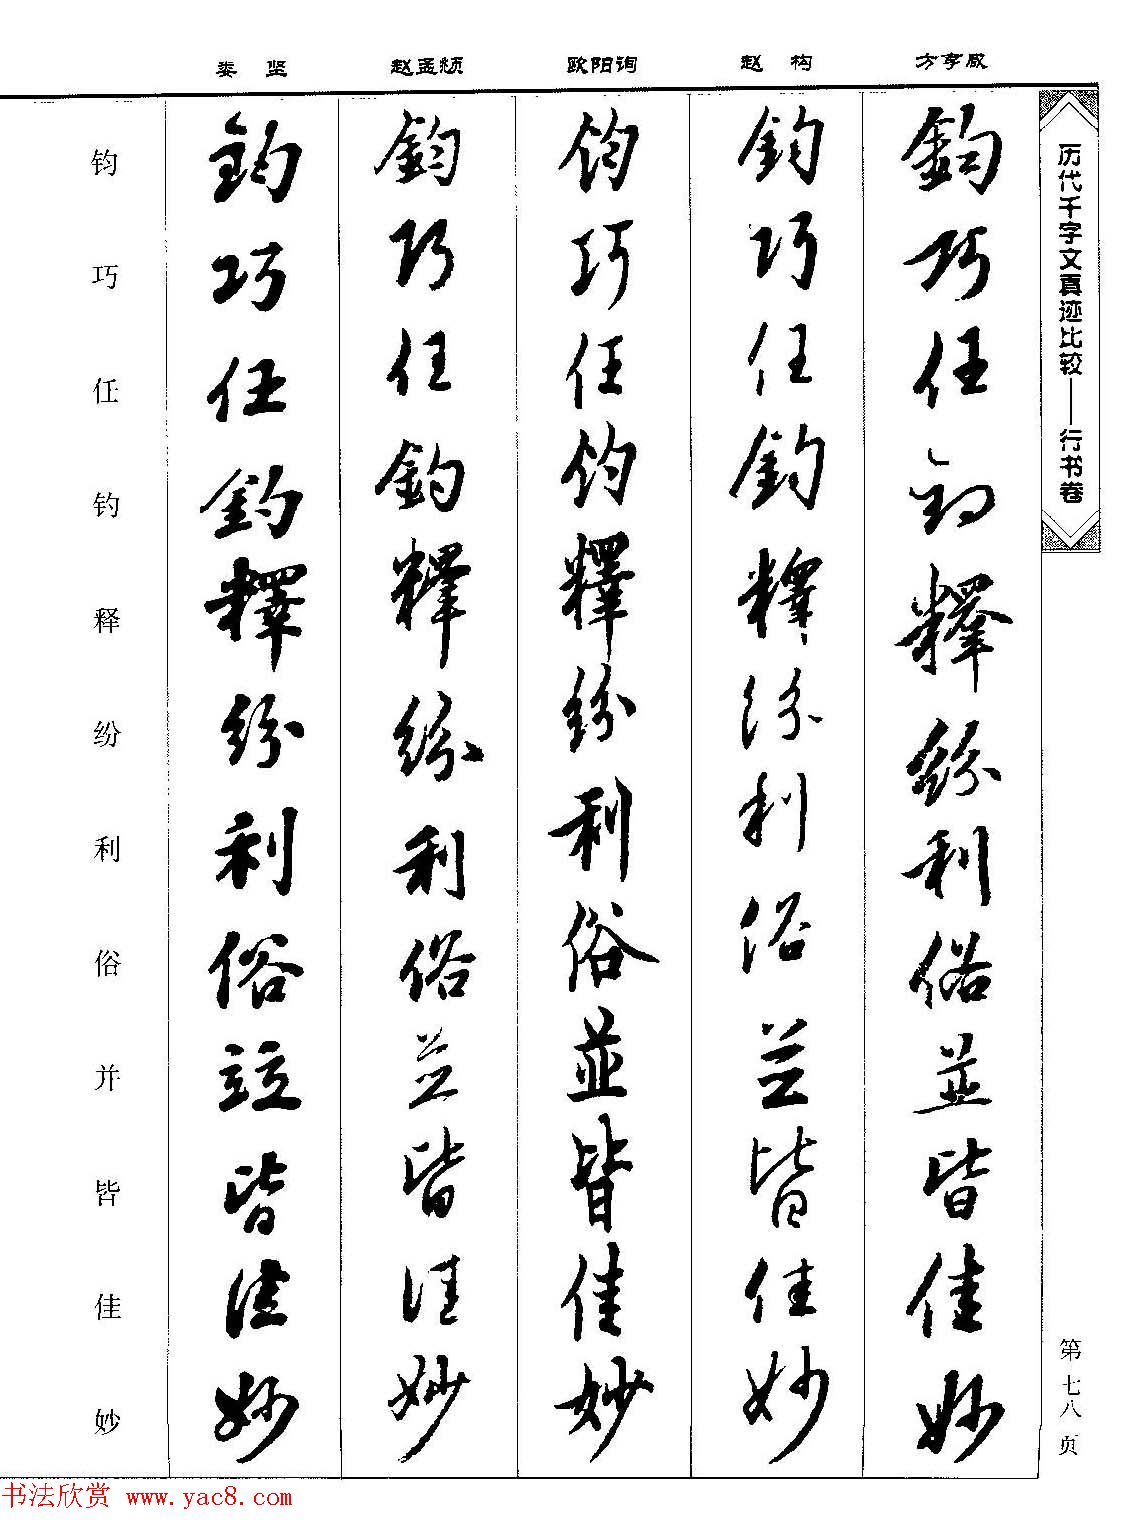 历代千字文真迹比较——行书卷
第七八页
方亨咸
鈞巧任釣釋紛利俗並皆佳妙
赵构
鈞巧任釣釋紛利俗並皆佳妙
欧阳询
鈞巧任釣釋紛利俗並皆佳妙
赵孟頫
鈞巧任釣釋紛利俗並皆佳妙
娄坚
鈞巧任釣釋紛利俗竝皆佳妙
钧巧任钓释纷利俗并皆佳妙
书法欣赏 www.yac8.com